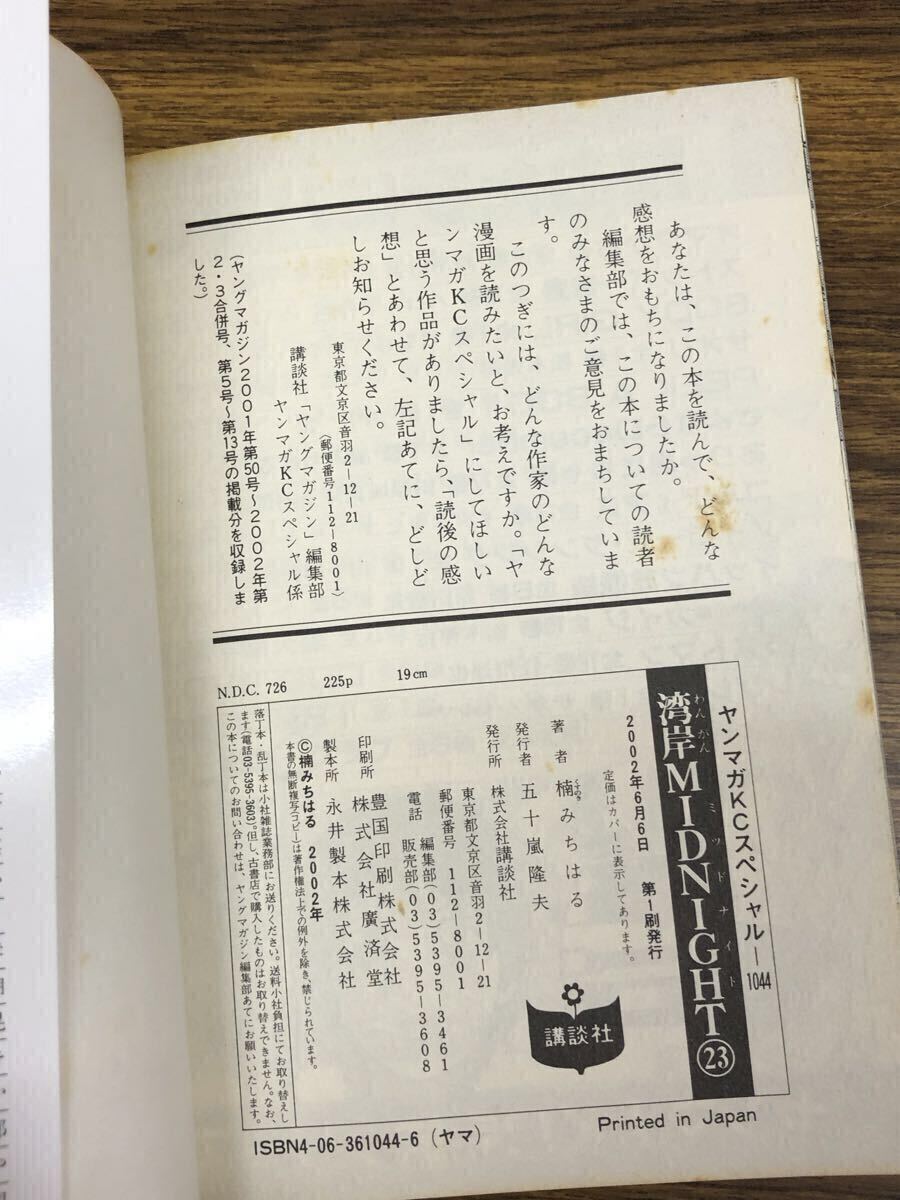 あなたは、この本を読んで、どんな
感想をおもちになりましたか。
編集部では、この本についての読者
のみなさまのご意見をおまちしていま
す。
このつぎには、どんな作家のどんな
漫画を読みたいと、お考えですか。「ヤ
ンマガKCスペシャル」にしてほしい
と思う作品がありましたら、「読後の感
想」とあわせて、左記あてに、どしど
しお知らせください。
東京都文京区音羽2―12―21
(郵便番号112―8001)
講談社「ヤングマガジン」編集部
ヤンマガKCスペシャル係
(ヤングマガジン2001年第50号~2002年第
2・3合併号、第5号~第13号の掲載分を収録しま
した。)
N.D.C. 726 225p 19cm
ヤンマガKCスペシャル―1044
わんがん ミッドナイト
湾岸MIDNIGHT㉓
2002年6月6日 第1刷発行
定価はカバーに表示してあります。
著者 楠みちはる
くすのき
発行者 五十嵐隆夫
発行所 株式会社講談社
東京都文京区音羽2―12―21
郵便番号 112―8001
電話 編集部(03)5395―3461
販売部(03)5395―3608
印刷所 豊国印刷株式会社
株式会社廣済堂
製本所 永井製本株式会社
©楠みちはる 2002年
本書の無断複写(コピー)は著作権法上での例外を除き、禁じられています。
落丁本・乱丁本は小社雑誌業務部にお送りください。送料小社負担にてお取り替えし
ます(電話03-5395-3603)。但し、古書店で購入したものはお取り替えできません。なお、
この本についてのお問い合わせは、ヤングマガジン編集部あてにお願いいたします。
講談社
ISBN4-06-361044-6 (ヤマ)
Printed in Japan